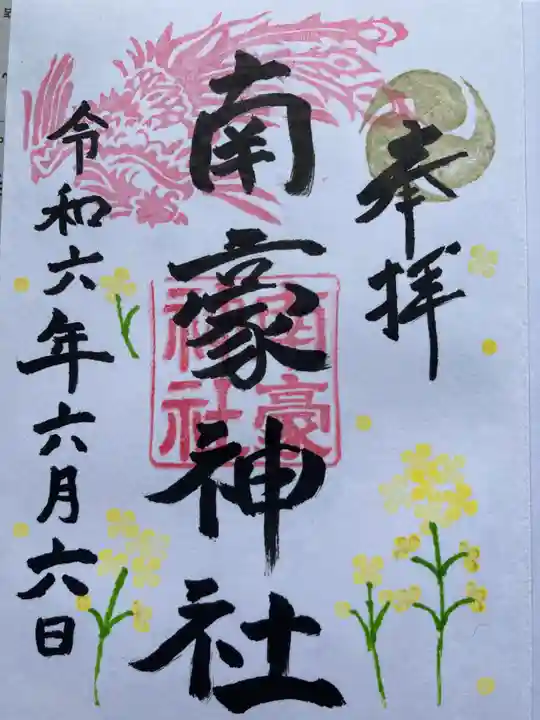 奉拝
南豪神社
南豪神社
令和六年六月六日